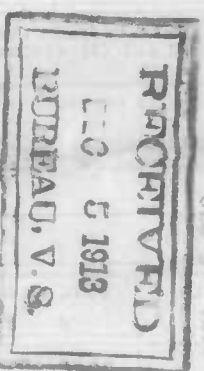 RECEIVED
DEC 5 1913
BUREAU, V. S.